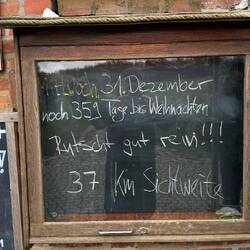 Mittwoch 31. Dezember
noch 359 Tage bis Weihnachten
Rutscht gut rein!!!
37 Km Sichtweite